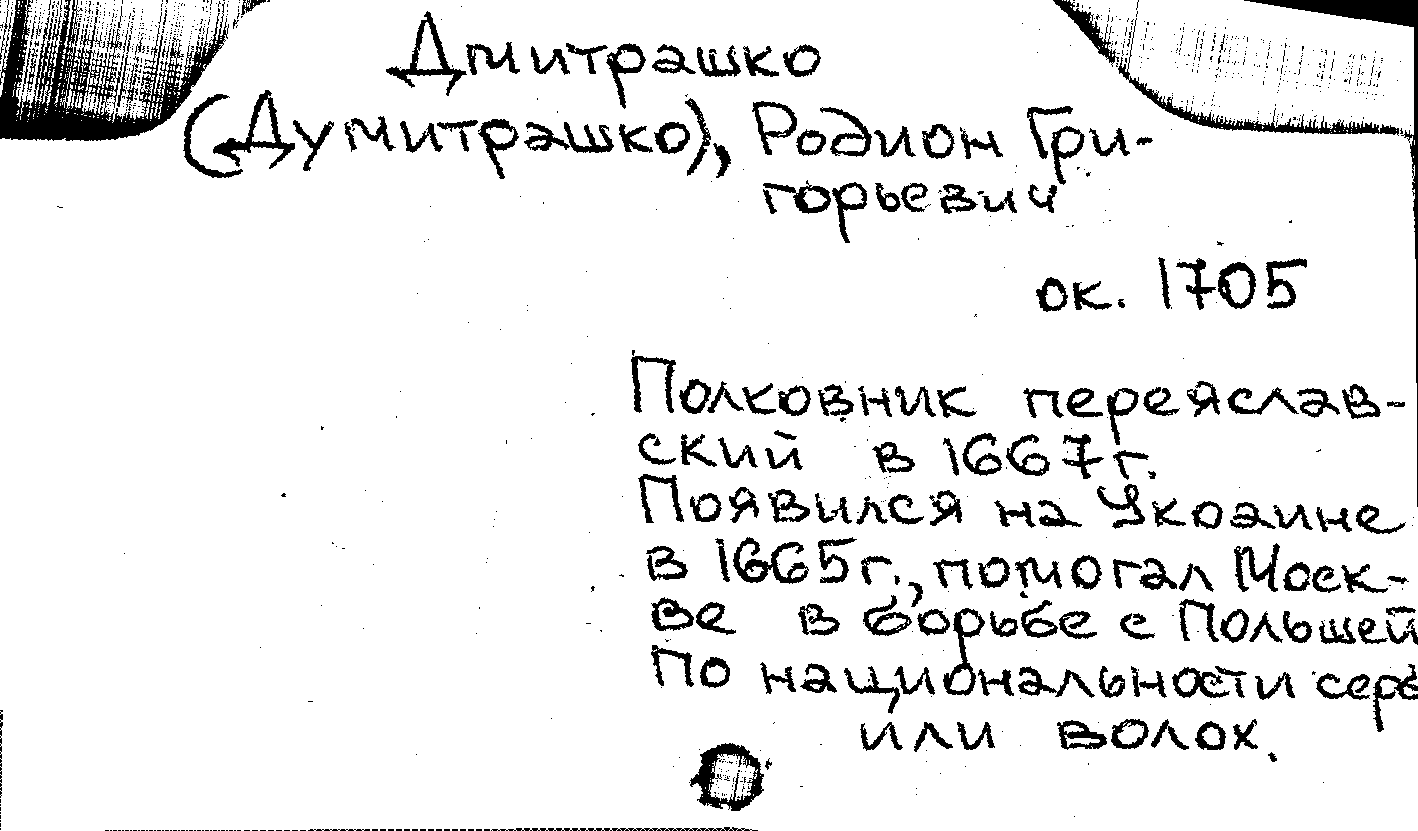 Дмитрашко
(Думитрашко), Родион Гри-
горьевич
ок. 1705
Полковник переяслав-
ский в 1667 г.
Появился на Украине
в 1665 г., помогал Моск-
ве в борьбе с Польшей
По национальности серб
или волох.